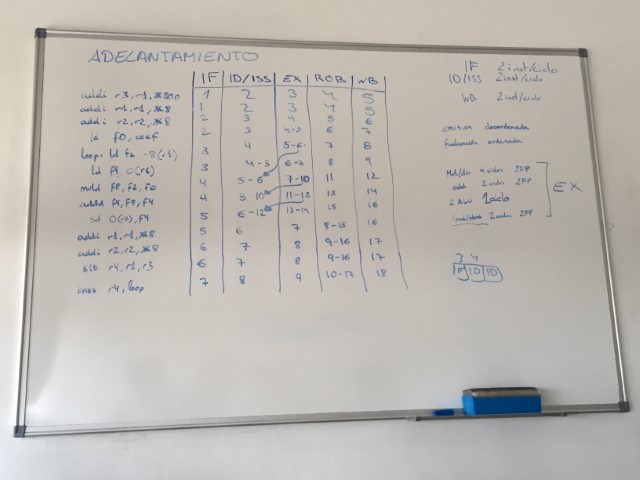 ADELANTAMIENTO
IF ID/ISS EX ROB WB
addi r3, r1, 1 2 3 4 5
addi r1, r1, #8 1 2 3 4 5
addi r2, r2, #8 2 3 4 5 6
ld f0, coef 2 3 4-5 6 7
loop: ld f2, -8(r1) 3 4 5-6 7 8
ld f4, 0(r2) 3 4-5 6-7 8 9
muld f8, f2, f0 4 5-6 7-10 11 12
addd f4, f8, f4 4 5-10 11-12 13 14
sd 0(r2), f4 5 6-12 13-14 15 16
addi r1, r1, #8 5 6 7 8-15 16
addi r2, r2, #8 6 7 8 9-16 17
slt r4, r1, r3 6 7 8 9-16 17
bnez r4, loop 7 8 9 10-17 18
IF 2 inst/ciclo
ID/ISS 2 inst/ciclo
WB 2 inst/ciclo
emision desordenada
finalización ordenada
Mul/div 4 ciclos
add 2 ciclos
2 ALU 1 ciclo
load/store 2 ciclos
EX
3 4
IF ID ID